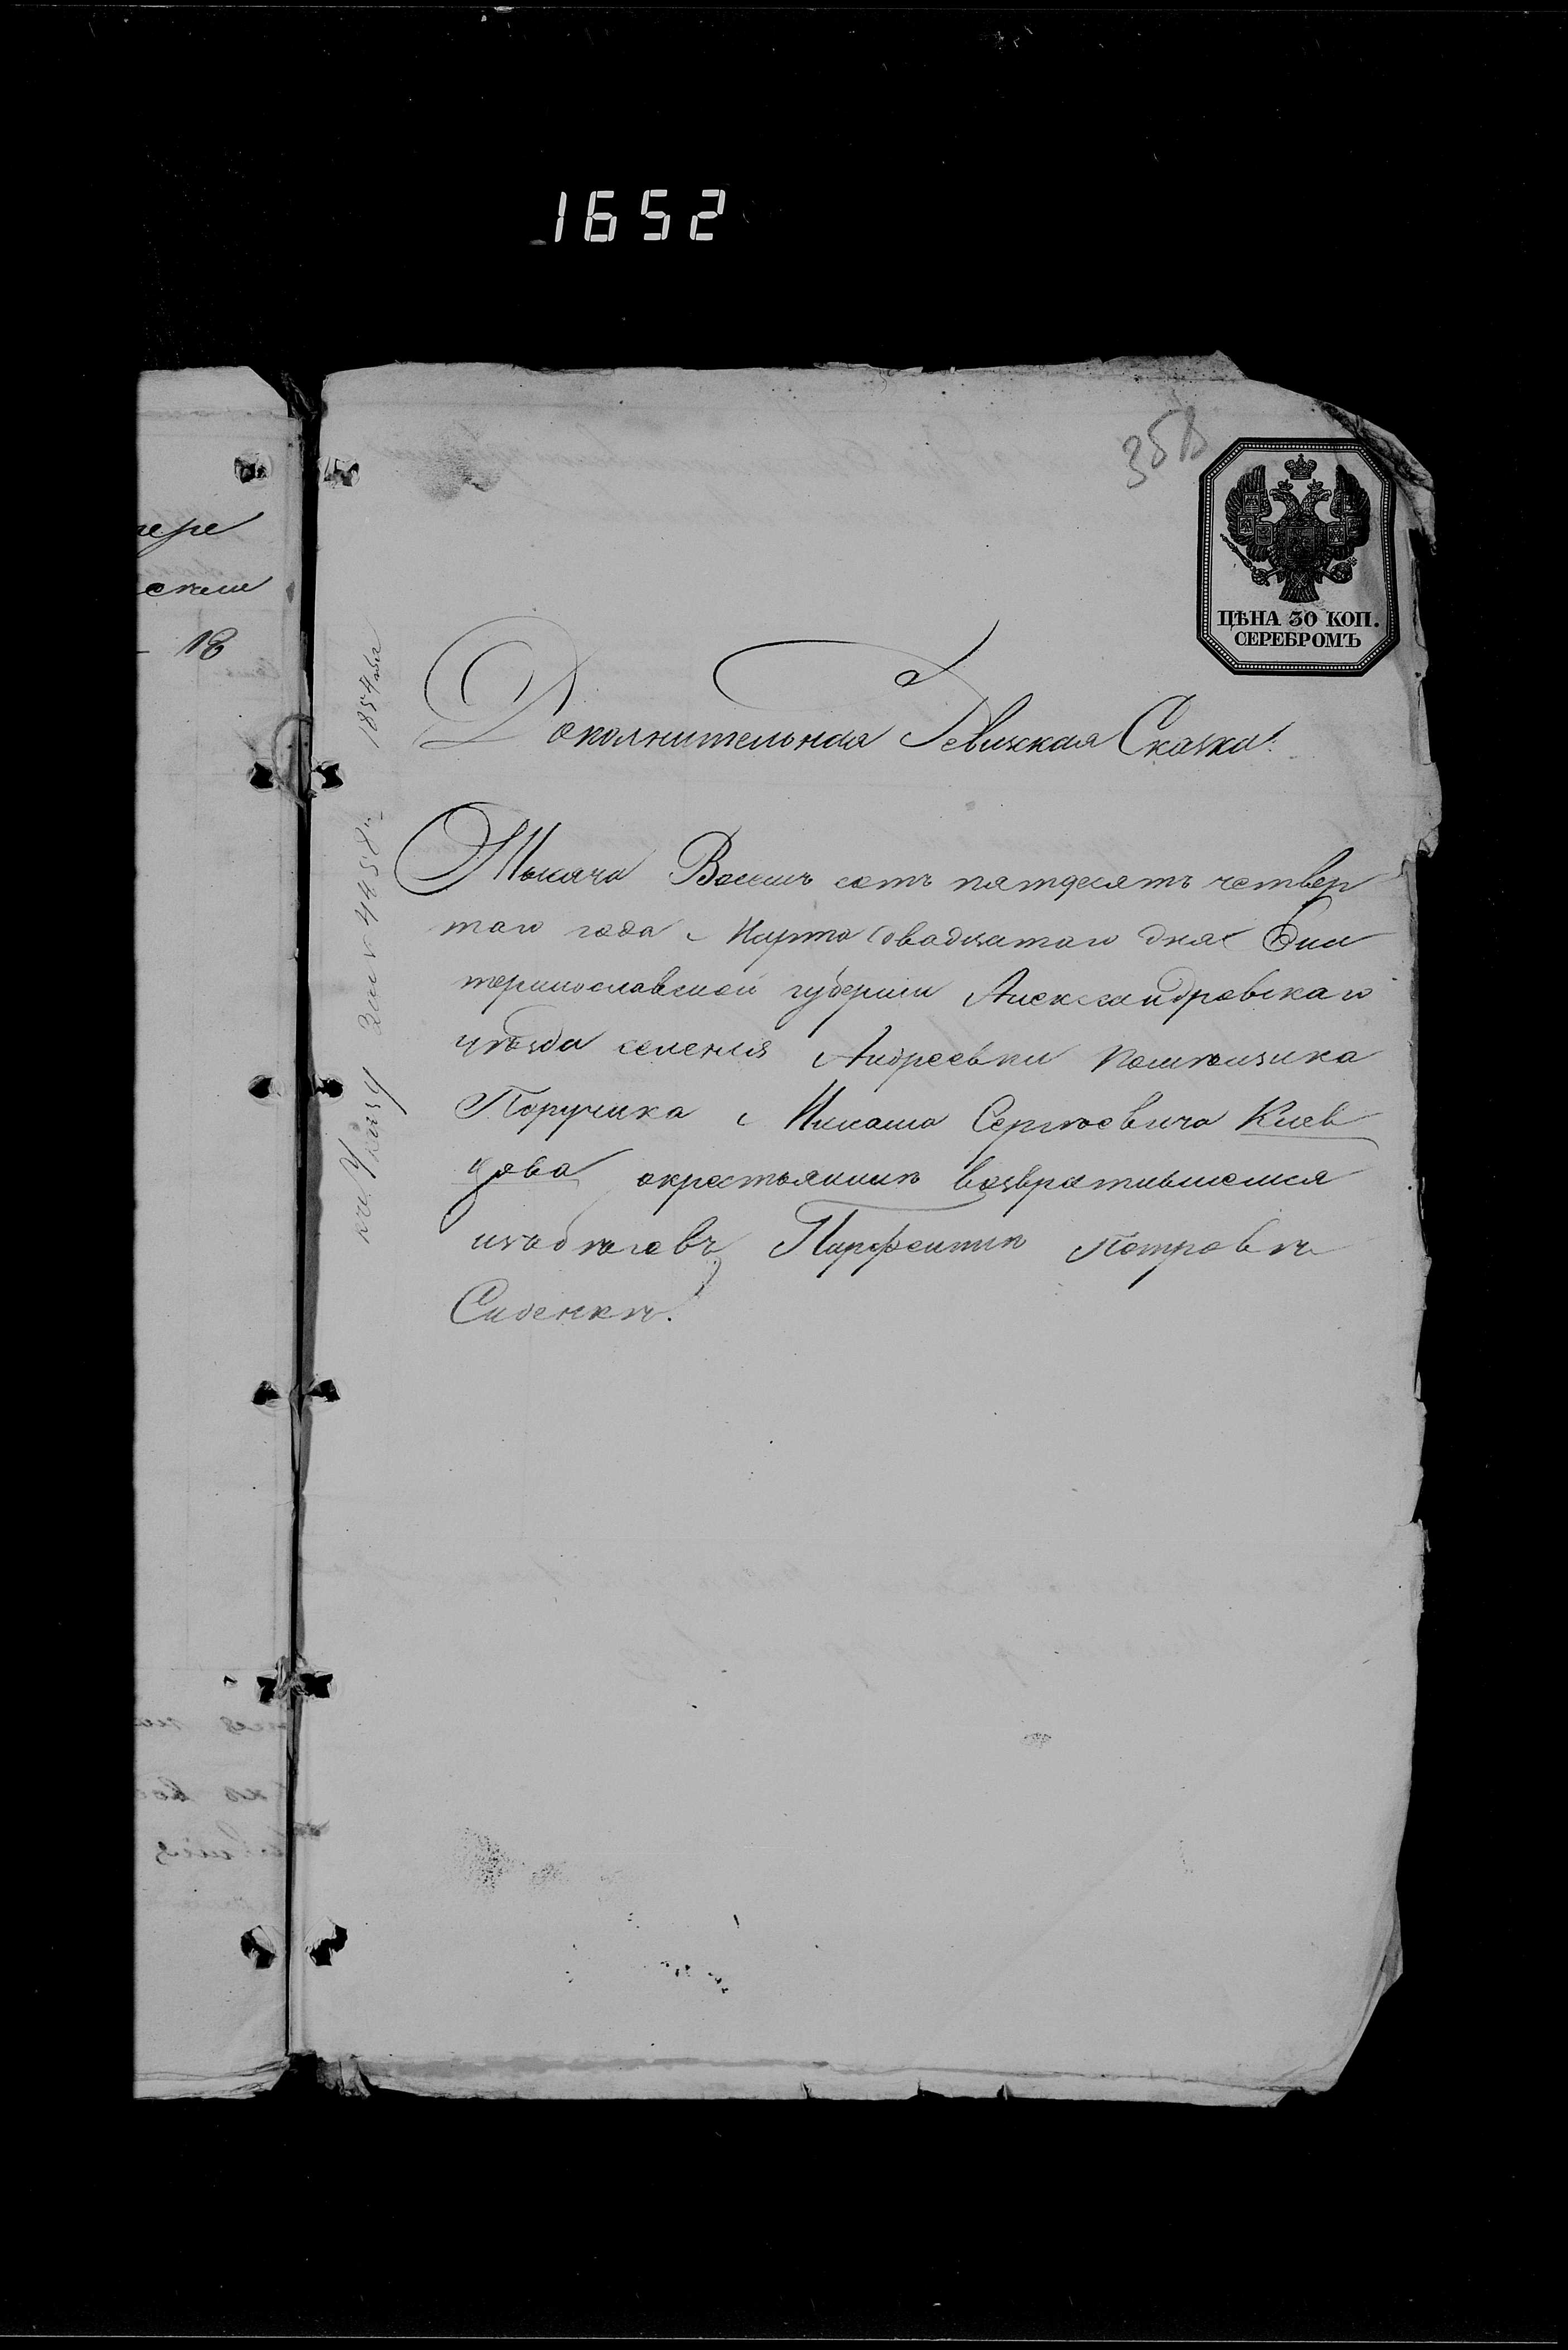 1652
358
ЦѢНА 30 КОП.
СЕРЕБРОМЪ
Дополнительная Ревизкая Сказка.
Тысяча Восемь сотъ пятдесятъ четвер
таго года Марта двадцатаго дня Ека
теринославской губерніи Александровскаго
уѣзда селенія Андреевки помѣщика
Поручика Михаила Сергѣевича Киев
цова окрестьянинѣ возвратившемся
изъ бѣговъ Парфентіѣ Петровѣ
Сиденкѣ.
1854 года
4458
скаи
18